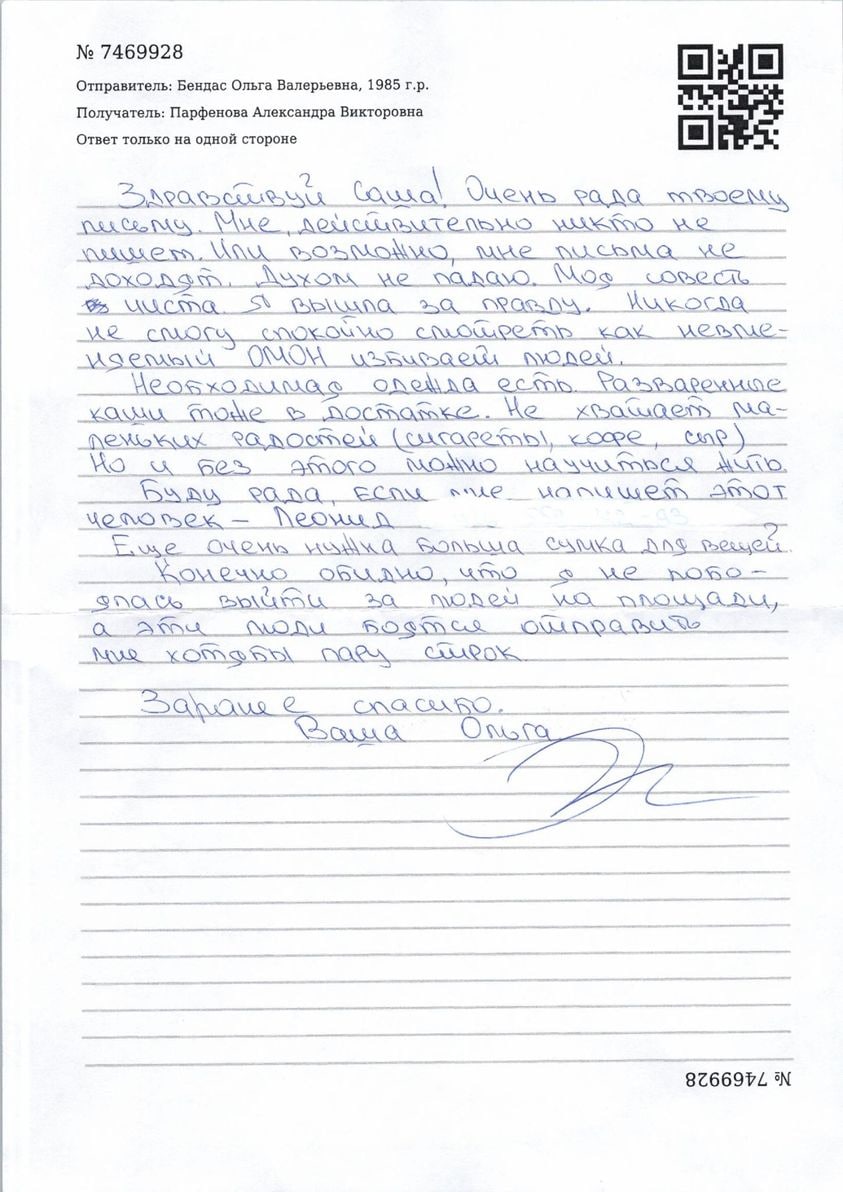 № 7469928
Отправитель: Бендас Ольга Валерьевна, 1985 г.р.
Получатель: Парфенова Александра Викторовна
Ответ только на одной стороне
Здравствуй Саша! Очень рада твоему
письму. Мне, действительно никто не
пишет. Или возможно, мне письма не
доходят. Духом не падаю. Моя совесть
чиста. Я вышла за правду. Никогда
не смогу спокойно смотреть как невме-
няемый ОМОН избивает людей.
Необходимая одежда есть. Разваренные
каши тоже в достатке. Не хватает ма-
леньких радостей (сигареты, кофе, сыр)
Но и без этого можно научиться жить.
Буду рада, если мне напишет этот
человек – Леонид
Еще очень нужна больша сумка для вещей.
Конечно обидно, что я не побо-
ялась выйти за людей на площади,
а эти люди боятся отправить
мне хотябы пару строк.
Заранее спасибо.
Ваша Ольга
№ 7469928